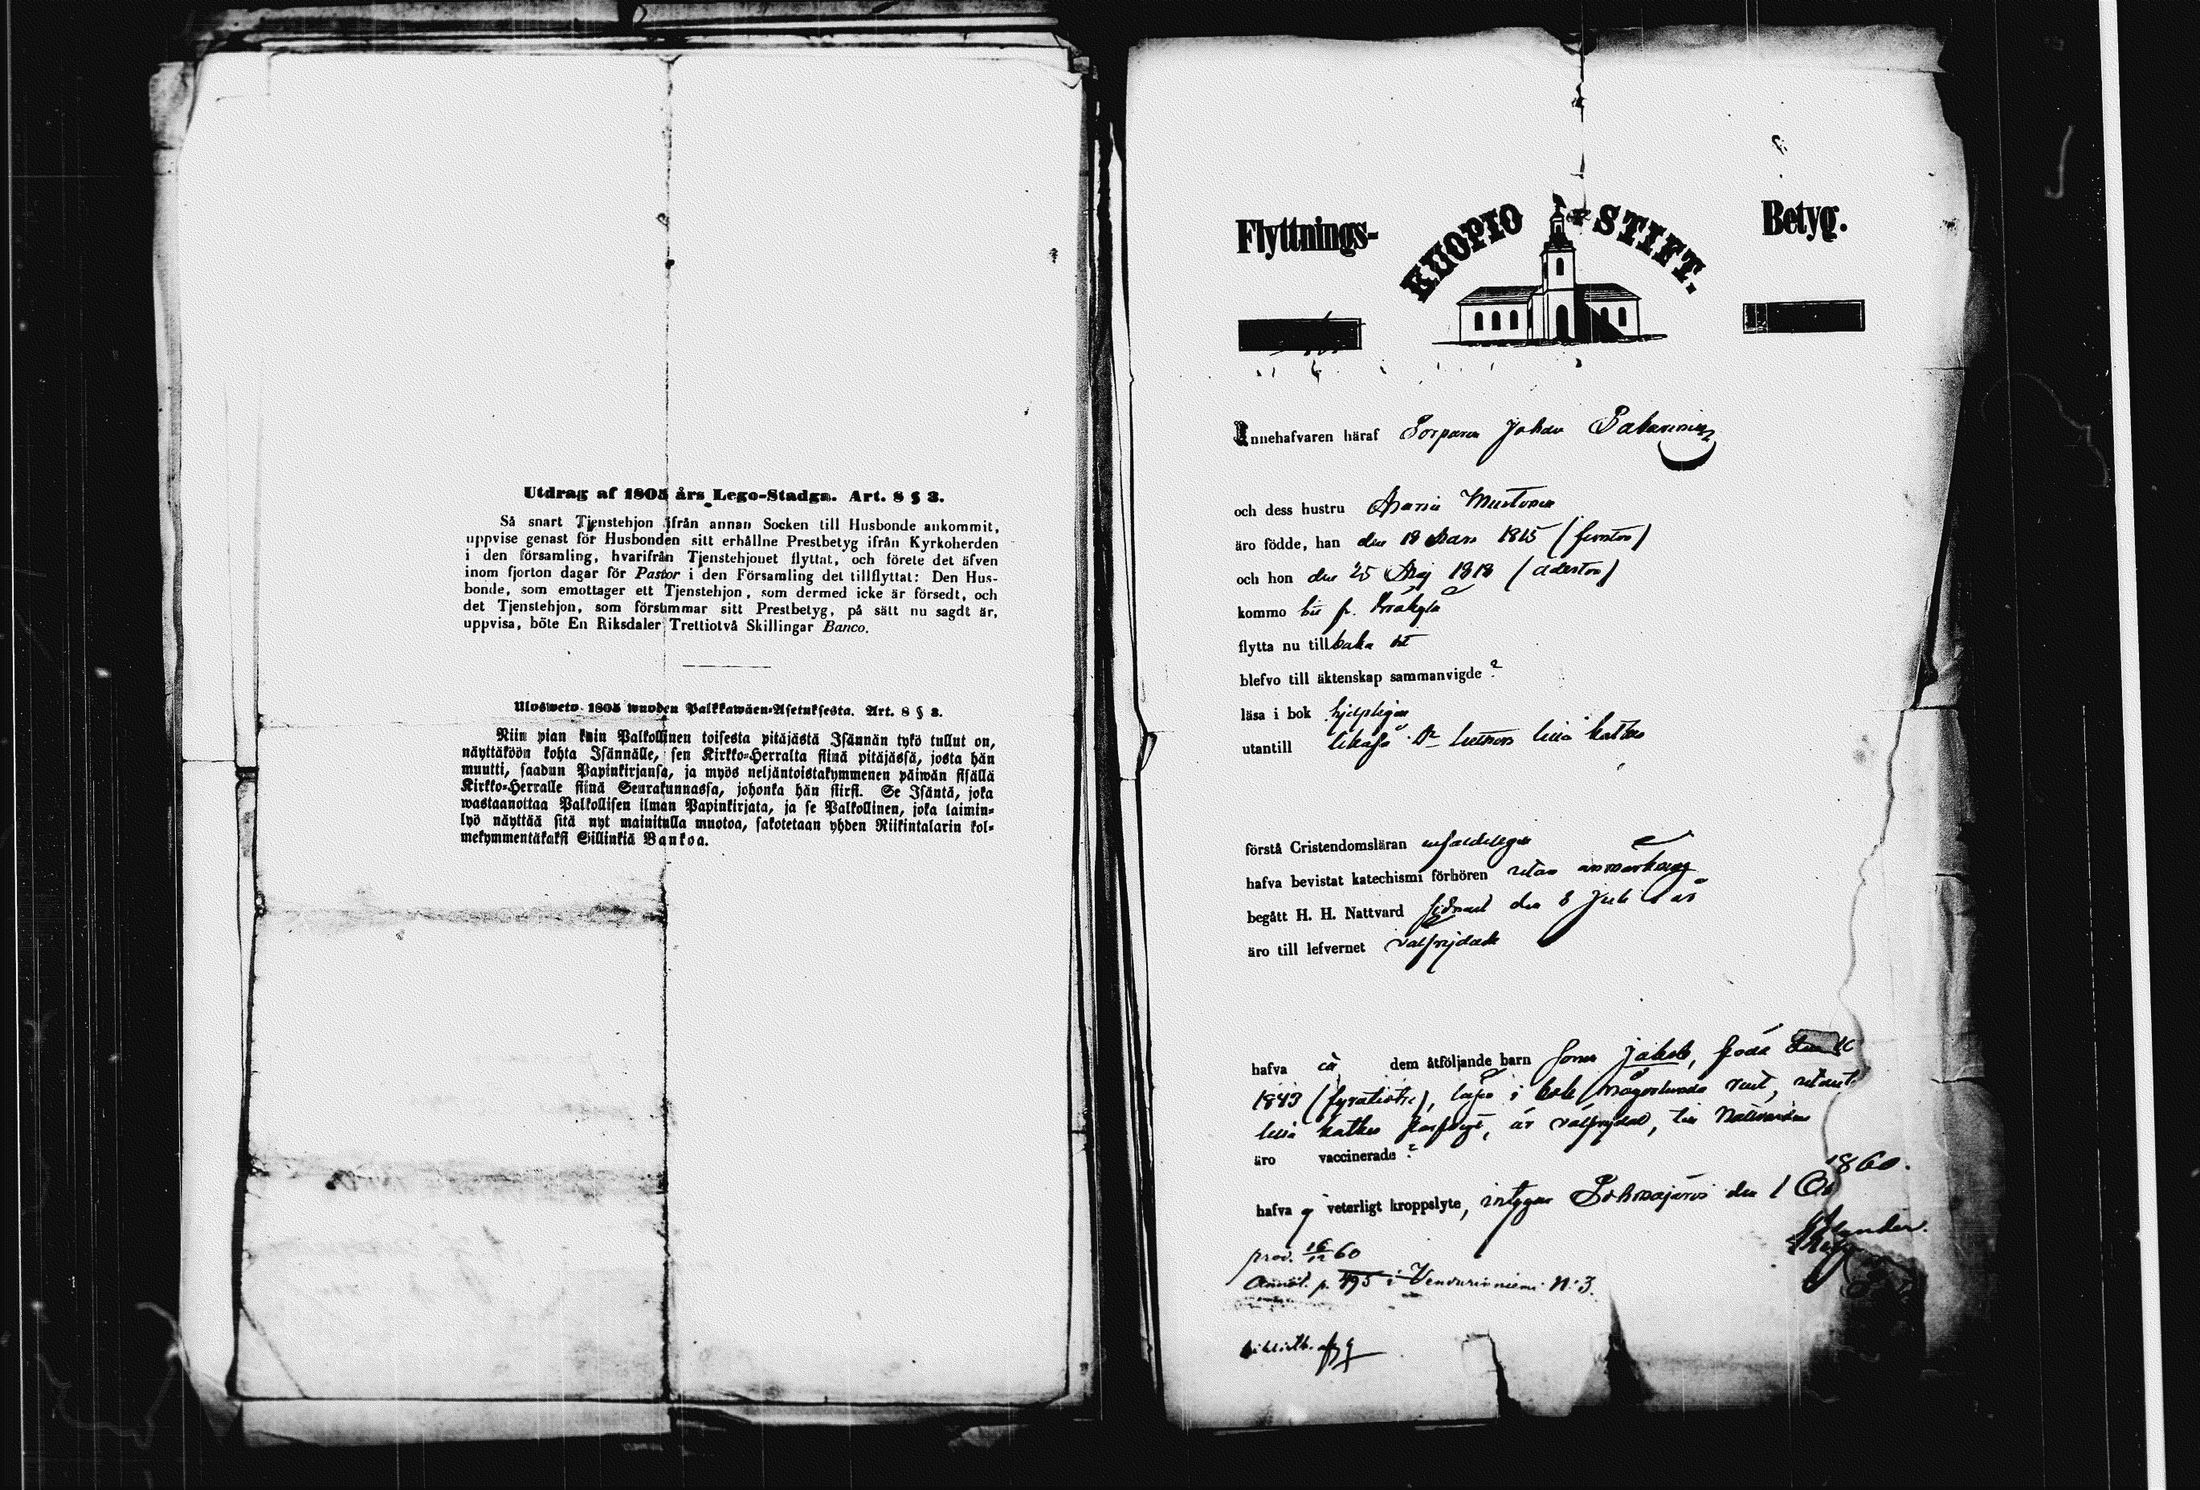 Utdrag af 1805 års Lego-Stadga. Art. 8 § 3.
Så snart Tjenstehjon ifrån annan Socken till Husbonde ankommit,
uppvise genast för Husbonden sitt erhållne Prestbetyg ifrån Kyrkoherden
i den församling, hvarifrån Tjenstehjonet flyttat, och förete det äfven
inom fjorton dagar för Pastor i den Församling det tillflyttat: Den Hus-
bonde, som emottager ett Tjenstehjon, som dermed icke är försedt, och
det Tjenstehjon, som försummar sitt Prestbetyg, på sätt nu sagdt är,
uppvisa, böte En Riksdaler Trettiotvå Skillingar Banco.
Ulosweto 1805 wuoden Palkkawäen-Asetuksesta. Art. 8 § 3.
Niin pian kuin Palkollinen toisesta pitäjästä Isännän tykö tullut on,
näyttäköön kohta Isännälle, sen Kirkko-Herralta siinä pitäjässä, josta hän
muutti, saadun Papinkirjansa, ja myös neljäntoistakymmenen päiwän sisällä
Kirkko-Herralle siinä Seurakunnassa, johonka hän siirsi. Se Isäntä, joka
wastaanottaa Palkollisen ilman Papinkirjata, ja se Palkollinen, joka laimin-
lyö näyttää sitä nyt mainitulla muotoa, sakotetaan yhden Riikintalarin kol-
mekymmentäkaksi Sillinkiä Bankoa.
Flyttnings- KUOPIO STIFT. Betyg.
Innehafvaren häraf Johan
och dess hustru Maria Mustonen
äro födde, han den 19 Mars 1815
och hon den 25 Maj 1818
kommo
flytta nu tillbaka dit
blefvo till äktenskap sammanvigde ?
läsa i bok hjelpligen
utantill Lutheri lilla kathes
förstå Cristendomsläran enfaldeligen
hafva bevistat katechismi förhören utan anmärkning
begått H. H. Nattvard sednast den 8 Juli d å
äro till lefvernet välfrejdade
hafva dem åtföljande barn Sonen Jakob, född
1843 i bok någorlunda rent, utant.
lilla kathes är välfrejdad, till Nattvarden
äro vaccinerade ?
hafva ej veterligt kroppslyte, intygar den 1 1860.
prod. 16/12 60
Annot. p. 495 i Vendurinniemi N:3.